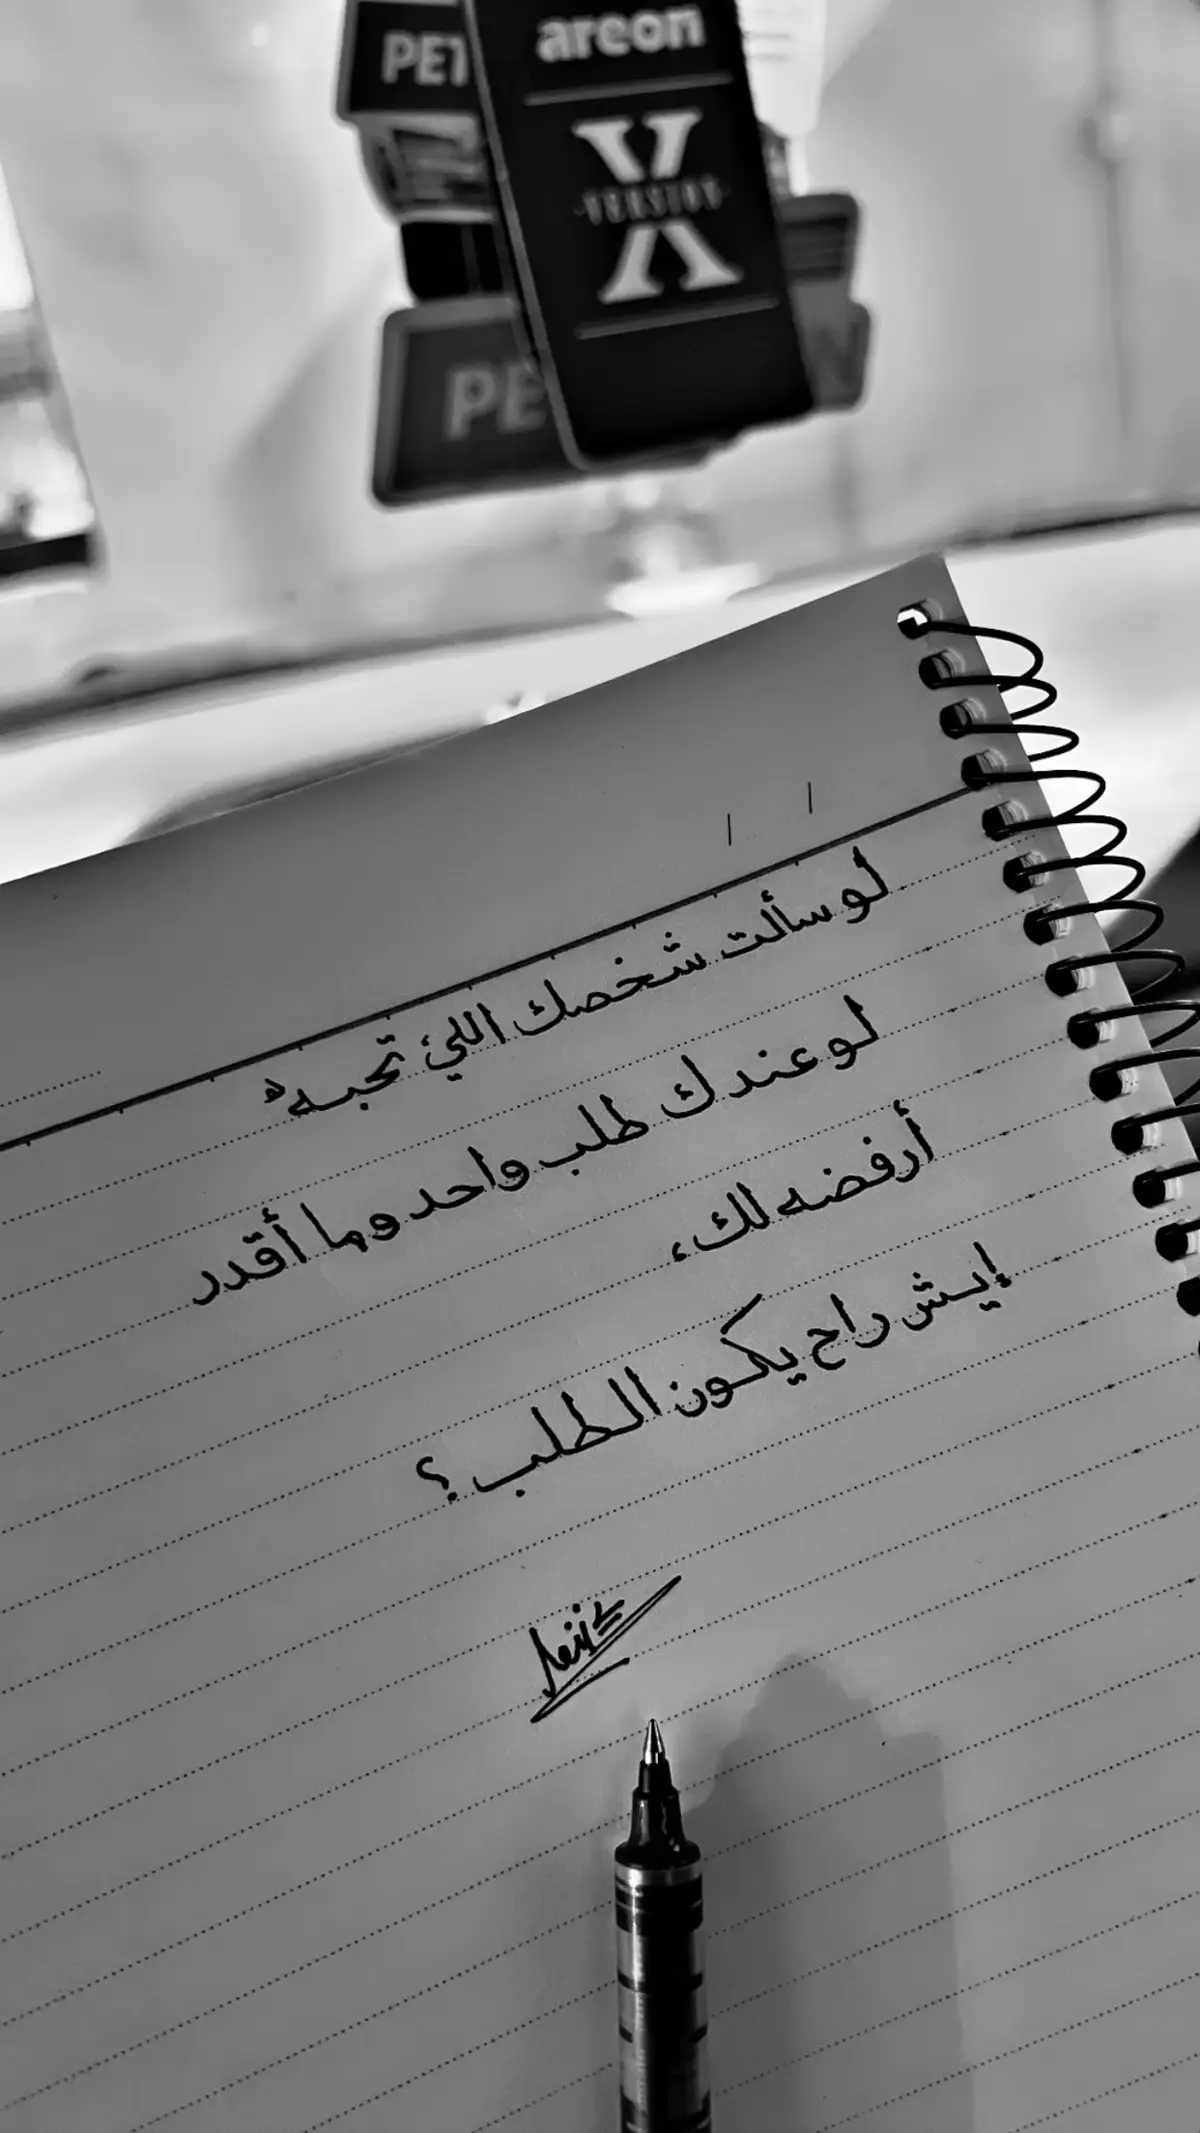 areon
X
VERSION
PET
PE
لو سألت شخصك اللي تحبه
لو عندك طلب واحد وما أقدر
أرفضه لك،
إيش راح يكون الطلب ؟